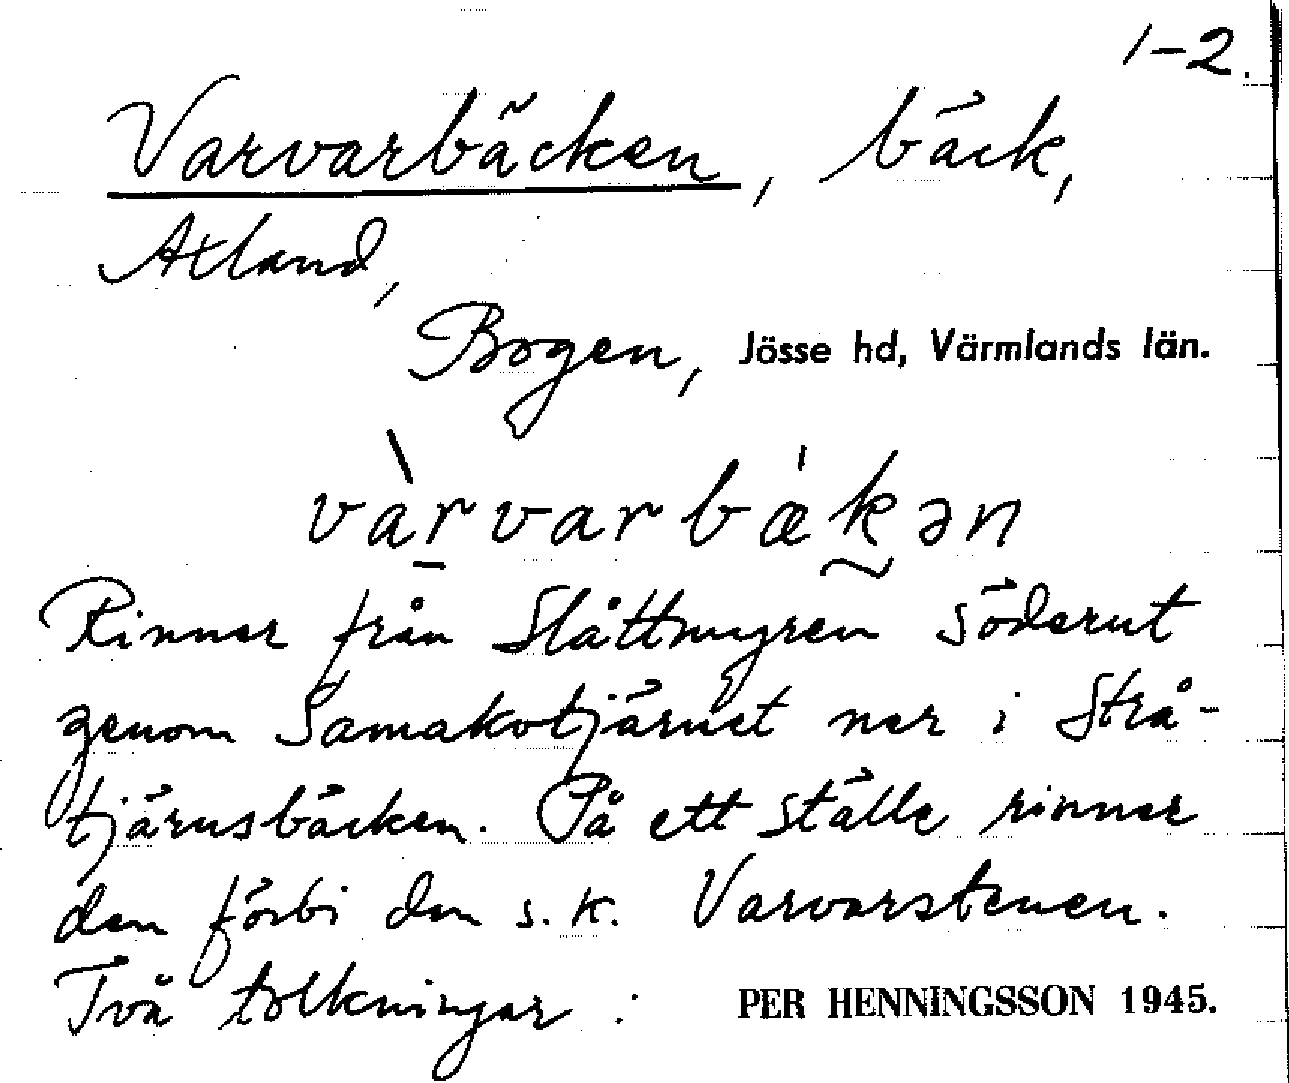 1-2.
Varvarbäcken, bäck,
Axland,
Bogen, Jösse hd, Värmlands län.
vàrvarbækən
Rinner från Slåttmyren söderut
genom Samakotjärnet ner i Strå-
tjärnsbäcken. På ett ställe rinner
den förbi den s.k. Varvarstenen.
Två tolkningar :
PER HENNINGSSON 1945.